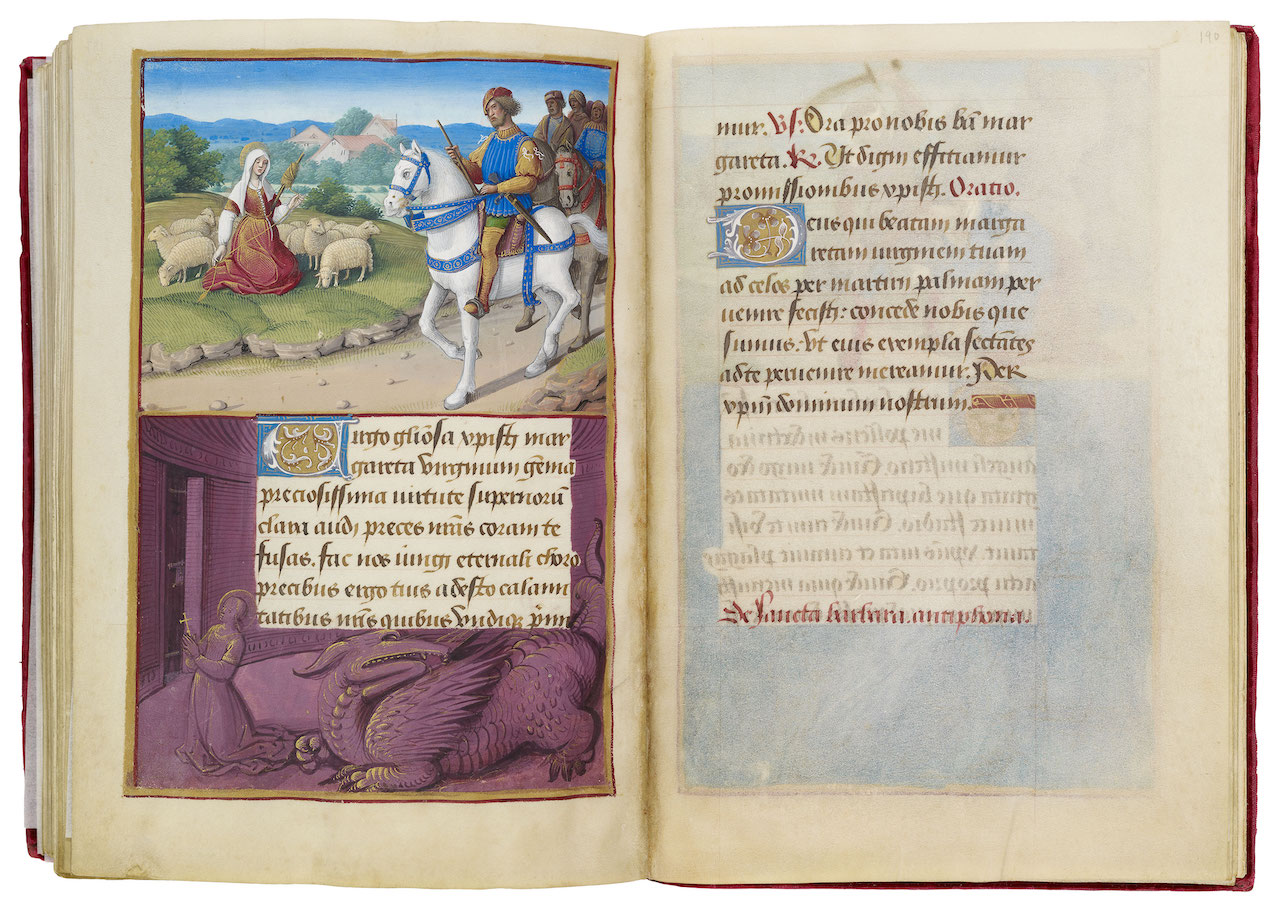 Virgo gliõsa xpisti mar
gareta virginum gẽma
preciosissima virtute supernorũ
clara audi preces nr̃as coram te
fusas. fac nos iungi eternali choro
precibus ergo tuis adesto calami
tatibus nr̃is quibus undiq̃ prim
190
mur. Vs: Ora pro nobis bã mar
gareta. R. Ut digni efficiamur
promissionibus xpisti. Oratio.
Deus qui beatam marga
retam virginem tuam
ad celos per martirii palmam per
venire fecisti: concede nobis que
sumus. ut eius exempla sectantes
ad te pervenire mereamur. Per
xpm̃ dominum nostrum.
De sancta barbara. antiphona.